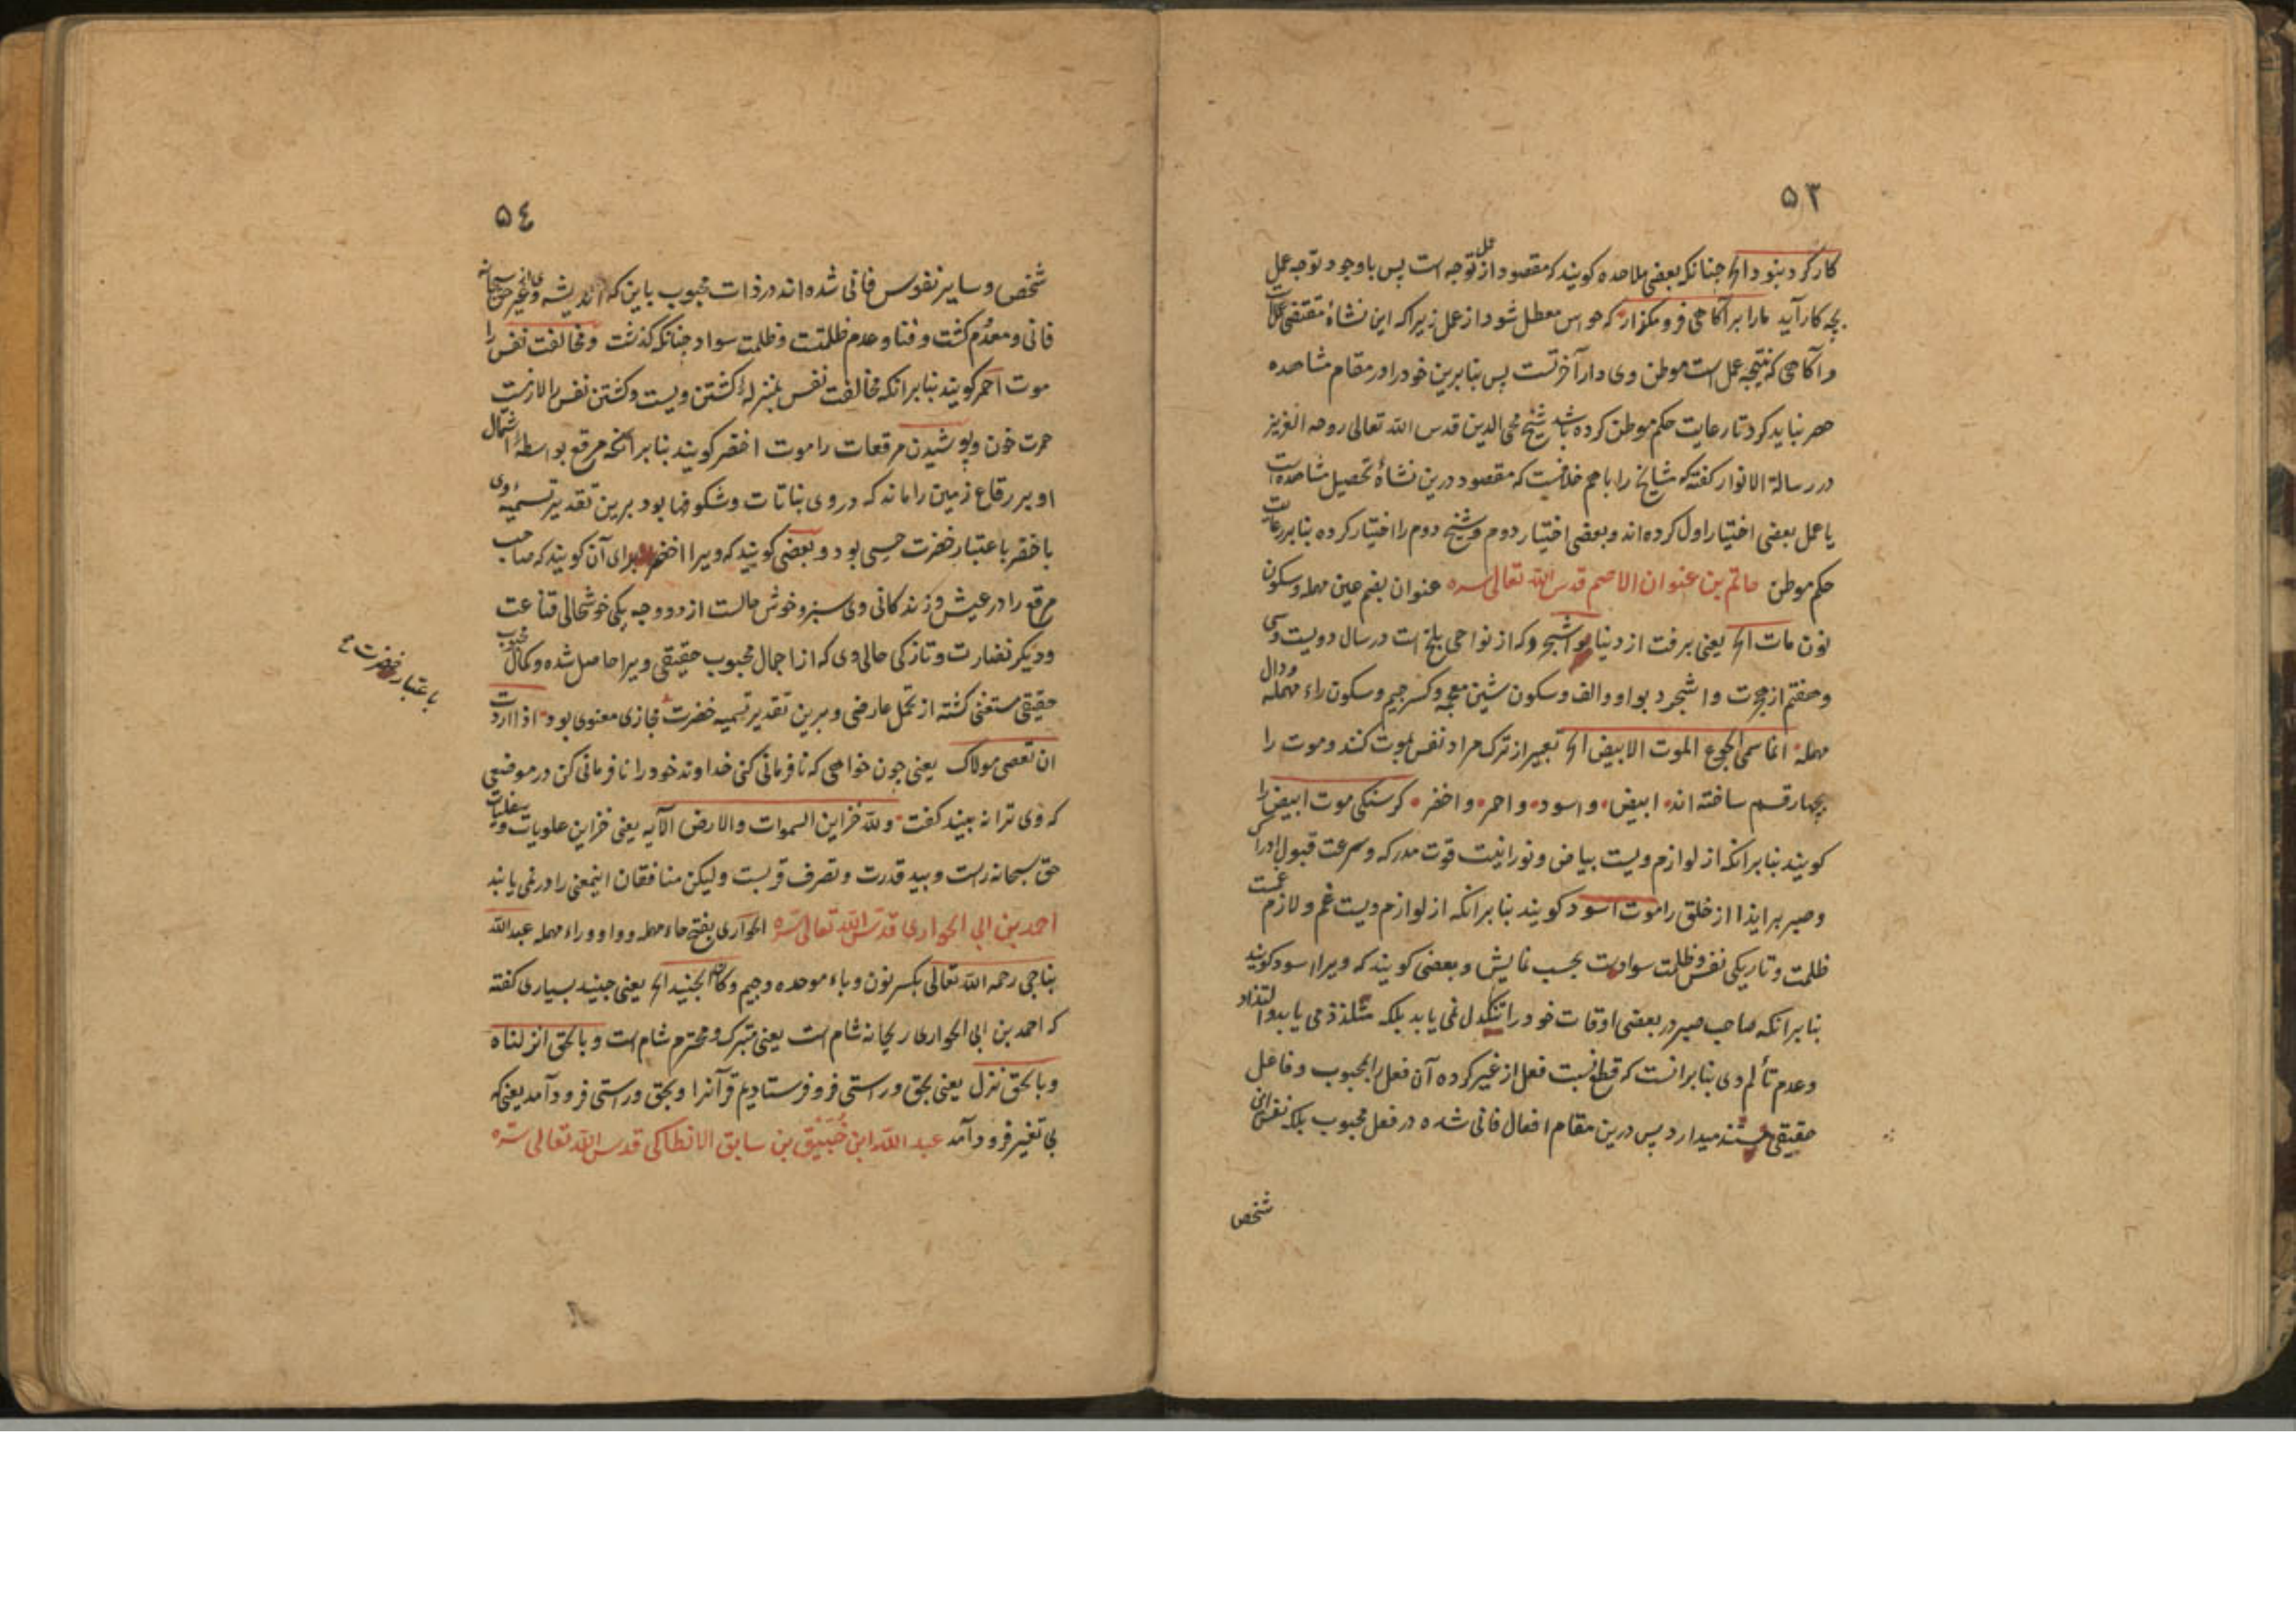 ۵۳
کار کرد بنود الخ چنانکه بعضی ملاحده کویند که مقصود از عمل توجه است پس با وجود توجه عمل
بچه کار آید ما را بر آکاهی فرو مگذار که حواس معطل شود از عمل زیرا که این نشأه مقتضی عمل است
و آکاهی که نتیجه عمل است موطن وی دار آخرتست پس بنابرین خود را در مقام مشاهده
حصر نباید کرد تا رعایت حکم موطن کرده باشد شیخ محی الدین قدس الله تعالی روحه العزیز
در رسالة الانوار کفته که مشایخ را با هم خلافست که مقصود درین نشأه تحصیل مشاهده است
یا عمل بعضی اختیار اول کرده اند و بعضی اختیار دوم و شیخ دوم را اختیار کرده بنابر رعایت
حکم موطن حاتم بن عنوان الاصم قدس الله تعالی سره عنوان بضم عین مهمله و سکون
نون مات الخ یعنی برفت از دنیا بواشجرد که از نواحی بلخ است در سال دویست و سی
و هفتم از هجرت واشجرد بواو والف و سکون شین معجمه و کسر جیم و سکون راء مهمله و دال
مهمله انما سمی الجوع الموت الابیض الخ تعبیر از ترک مراد نفس بموت کنند و موت را
بچهار قسم ساخته اند ابیض و اسود و احمر و اخضر کرسنکی موت ابیض را
کویند بنابر انکه از لوازم ویست بیاض و نورانیت قوت مدرکه و سرعت قبول ادراک
و صبر بر ایذا از خلق را موت اسود کویند بنابر انکه از لوازم ویست غم و لازم غمست
ظلمت و تاریکی نفس و ظلمت سوادست بحسب نمایش و بعضی کویند که ویرا اسود کویند
بنابر انکه صاحب صبر در بعضی اوقات خود را تنکدل نمی یابد بلکه متلذذ می یابد و التذاذ
و عدم تألم وی بنابر انست که قطع نسبت فعل از غیر کرده آن فعل را بمحبوب و فاعل
حقیقی مستند میدارد پس درین مقام افعال فانی شده در فعل محبوب بلکه نفس این
شخص
۵٤
شخص و سایر نفوس فانی شده اند در ذات محبوب باین که اندیشه وی از غیر حق سبحانه
فانی و معدوم کشت و فنا و عدم ظلمتست و ظلمت سواد چنانکه کذشت و مخالفت نفس را
موت احمر کویند بنابر انکه مخالفت نفس بمنزلهٔ کشتن ویست و کشتن نفس را لازمست
حمرت خون و پوشیدن مرقعات را موت اخضر کویند بنابر آنکه مرقع بواسطهٔ اشتمال
او بر رقاع زمین را ماند که در وی نباتات و شکوفها بود برین تقدیر تسمیهٔ وی
باخضر باعتبار خضرت حسی بود و بعضی کویند که ویرا اخضر برای آن کویند که صاحب
مرقع را در عیش و زندکانی وی سبز و خوش حالست از دو وجه یکی خوشحالی قناعت
و دیکر نضارت و تازکی حالی وی که از اجمال محبوب حقیقی ویرا حاصل شده و بکمال محبوب
حقیقی مستغنی کشته از تجمل عارضی و برین تقدیر تسمیه خضرت مجازی معنوی بود اذا اردت
باعتبار خضرت صح
ان تعصی مولاک یعنی چون خواهی که نافرمانی کنی خداوند خود را نافرمانی کن در موضعی
که وی ترا نه بیند کفت ولله خزاین السموات والارض الآیه یعنی خزاین علویات و سفلیات
حق سبحانه راست و بید قدرت و تصرف ویست ولیکن منافقان اینمعنی را در نمی یابند
احمد بن ابی الحواری قدس الله تعالی سره الحواری بفتح حاء مهمله و واو و راء مهمله عبدالله
بناجی رحمه الله تعالی بکسر نون و باء موحده و جیم و کان الجنید الخ یعنی جنید بسیاری کفته
که احمد بن ابی الحواری ریحانه شام است یعنی متبرک و محترم شام است و بالحق انزلناه
و بالحق نزل یعنی بحق و راستی فرو فرستادیم قرآنرا و بحق و راستی فرود آمد یعنی که
بی تغیر فرود آمد عبد الله ابن خُبَیْق بن سابق الانطاکی قدس الله تعالی سره